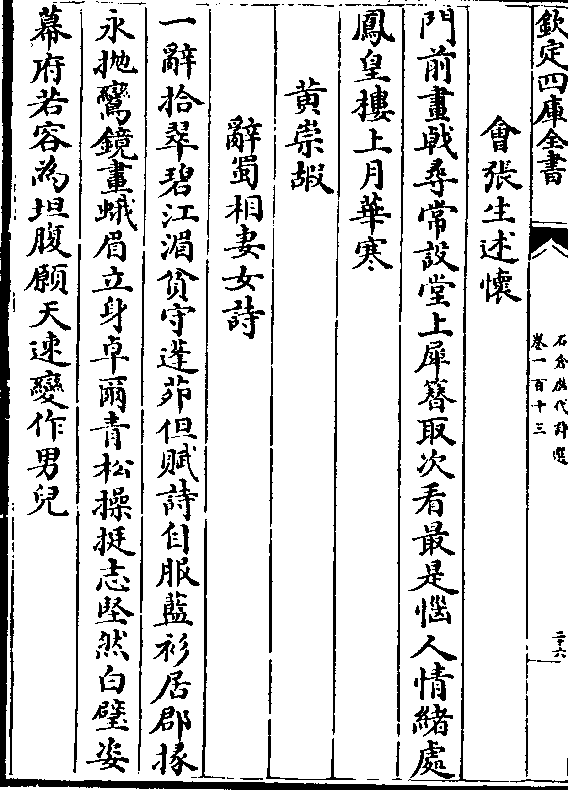 欽定四庫全書
石倉歷代詩選
卷一百十三
二十六
會張生述懷
門前畫㦸尋常設堂上犀簪取次看最是惱人情緒處
鳳皇樓上月華寒
黄崇嘏
辭蜀相妻女詩
一辭拾翠碧江湄貧守蓬茆但賦詩自服藍衫居郡掾
永抛鸞鏡畫蛾眉立身卓爾青松操挺志堅然白璧姿
幕府若容為坦腹願天速變作男兒